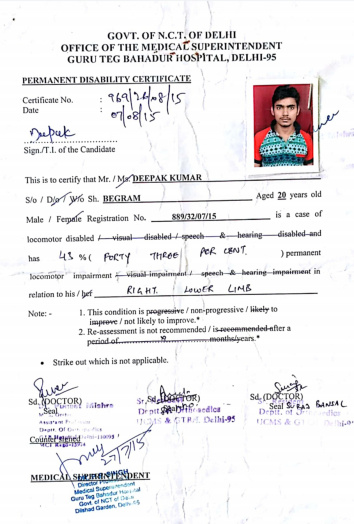 GOVT. OF N.C.T. OF DELHI
OFFICE OF THE MEDICAL SUPERINTENDENT
GURU TEG BAHADUR HOSPITAL, DELHI-95
PERMANENT DISABILITY CERTIFICATE
Certificate No. : 969/26/08/15
Date : 07/08/15
Deepak
Sign./T.I. of the Candidate
This is to certify that Mr. / Ms. DEEPAK KUMAR
S/o / D/o / W/o Sh. BEGRAM Aged 20 years old
Male / Female Registration No. 889/32/07/15 is a case of
locomotor disabled / visual disabled / speech & hearing disabled and
has 43 % ( FORTY THREE PER CENT. ) permanent
locomotor impairment / visual impairment / speech & hearing impairment in
relation to his / her RIGHT LOWER LIMB
Note: - 1. This condition is progressive / non-progressive / likely to
improve / not likely to improve.*
2. Re-assessment is not recommended / is recommended after a
period of months/years.*
• Strike out which is not applicable.
Sd. (DOCTOR) Sr. Sd. (DOCTOR) Sd. (DOCTOR)
Seal Mishra Seal Seal SURAJ BANSAL
Deptt. Orthopaedics Deptt. of
UCMS & GTBH, Delhi-95 UCMS & GT
Counter signed
27/7/15
MEDICAL SUPERINTENDENT
SINGH
Director
Medical Superintendent
Guru Teg Bahadur Hospital
Govt. of NCT of Delhi
Dilshad Garden, Delhi-95